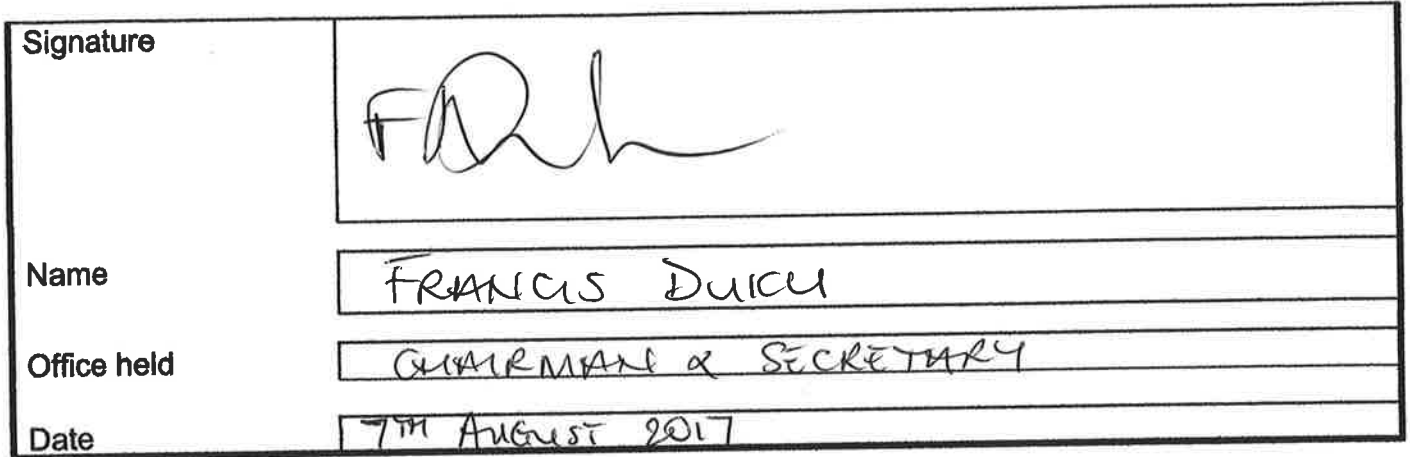 Signature
Name FRANCIS DUKU
Office held CHAIRMAN & SECRETARY
Date 7TH AUGUST 2017